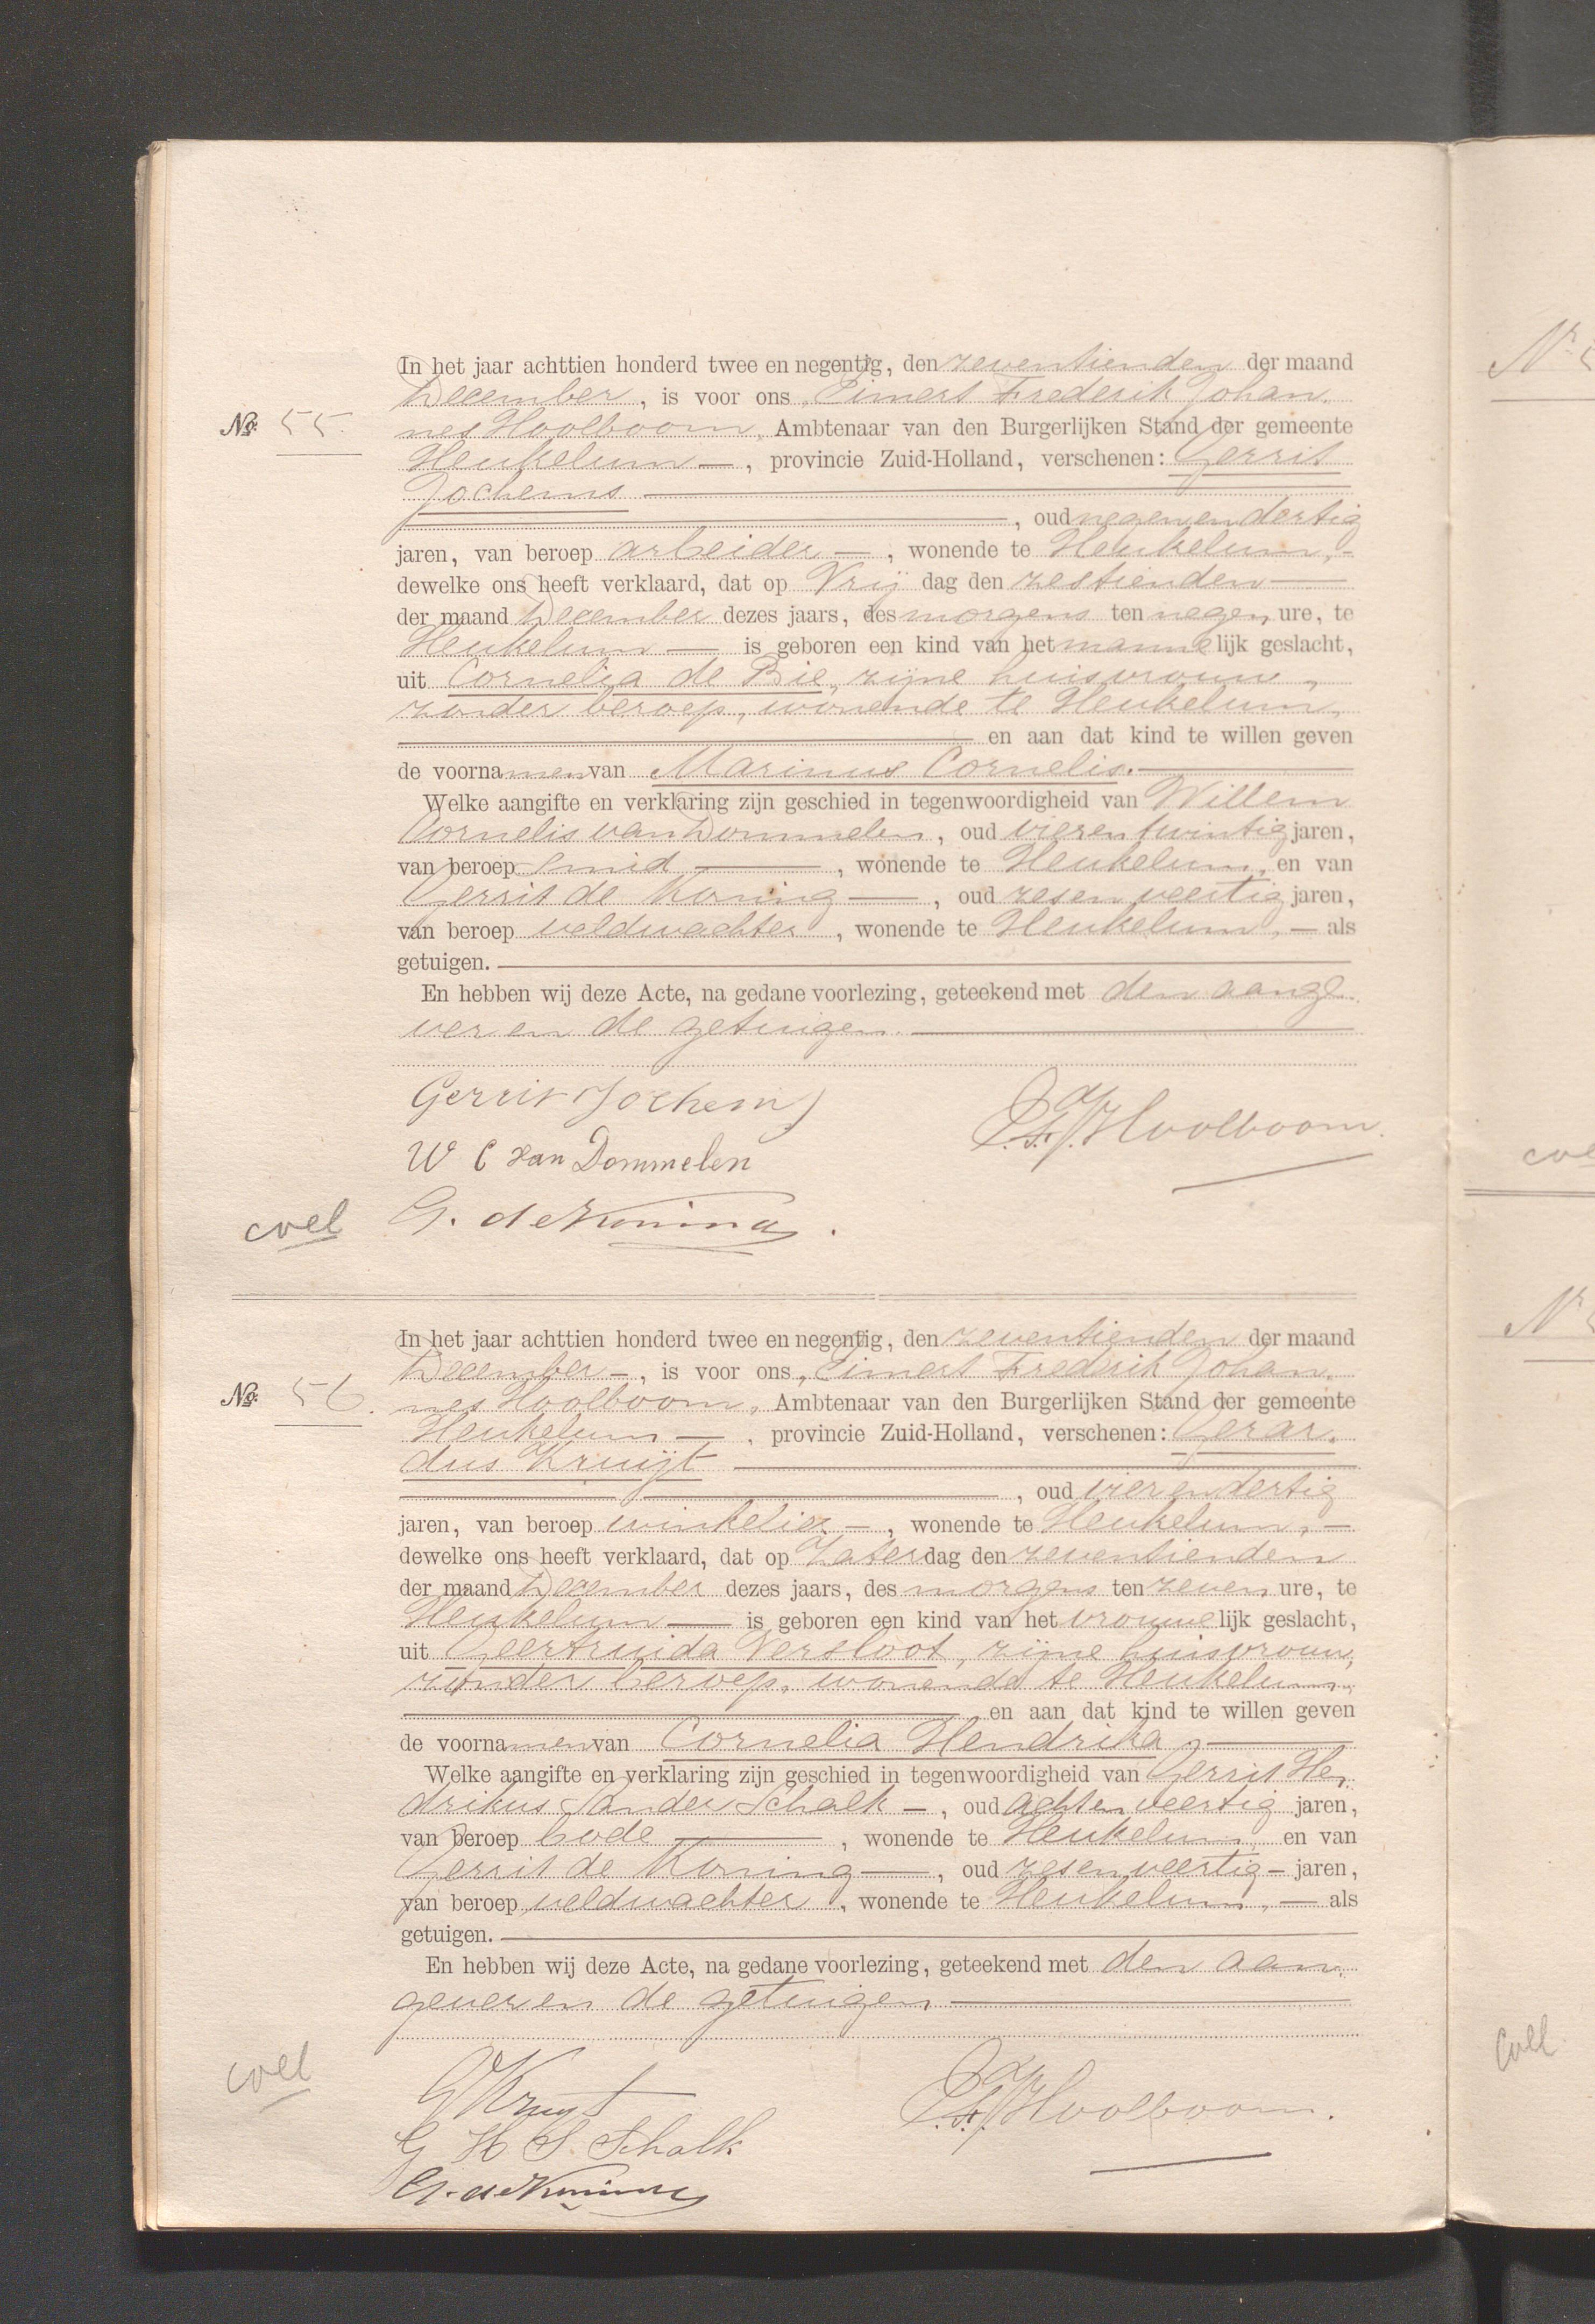 In het jaar achttien honderd twee en negentig, den zeventienden der maand
December, is voor ons, Eimert Frederik Johan.
No. 55. nes Hoolboom, Ambtenaar van den Burgerlijken Stand der gemeente
Heukelum —, provincie Zuid-Holland, verschenen: Gerrit
Jochems
, oud negenendertig
jaren, van beroep arbeider —, wonende te Heukelum, -
dewelke ons heeft verklaard, dat op Vrij dag den zestienden
der maand December dezes jaars, des morgens ten negen ure, te
Heukelum — is geboren een kind van het manne lijk geslacht,
uit Cornelia de Bie, zijne huisvrouw,
zonder beroep, wonende te Heukelum,
en aan dat kind te willen geven
de voornamen van Marinus Cornelis.
Welke aangifte en verklaring zijn geschied in tegenwoordigheid van Willem
Cornelis van Dommelen, oud vierentwintig jaren,
van beroep smid —, wonende te Heukelum, en van
Gerrit de Koning —, oud zesenveertig jaren,
van beroep veldwachter, wonende te Heukelum, — als
getuigen.
En hebben wij deze Acte, na gedane voorlezing, geteekend met den aange
ver en de getuigen.
Gerrit Jochems
E.F.J. Hoolboom.
W C van Dommelen
coll G. de Koning.
In het jaar achttien honderd twee en negentig, den zeventienden der maand
December -, is voor ons, Eimert Frederik Johan.
No. 56. nes Hoolboom, Ambtenaar van den Burgerlijken Stand der gemeente
Heukelum —, provincie Zuid-Holland, verschenen: Gerar.
dus Kruijt
, oud vierendertig
jaren, van beroep winkelier -, wonende te Heukelum, -
dewelke ons heeft verklaard, dat op Zaterdag den zeventienden
der maand December dezes jaars, des morgens ten zeven ure, te
Heukelum — is geboren een kind van het vrouwelijk geslacht,
uit Geertruida Versloot, zijne huisvrouw,
zonder beroep, wonende te Heukelum,
en aan dat kind te willen geven
de voornamen van Cornelia Hendrika.
Welke aangifte en verklaring zijn geschied in tegenwoordigheid van Gerrit Hen
drikus Sander Schalk -, oud achtenveertig jaren,
van beroep bode —, wonende te Heukelum, en van
Gerrit de Koning —, oud zesenveertig - jaren,
van beroep veldwachter, wonende te Heukelum, — als
getuigen.
En hebben wij deze Acte, na gedane voorlezing, geteekend met den aan.
gever en de getuigen
coll GKruyt
E.F.J. Hoolboom.
G H S. Schalk
G. de Koning
No
coll
No
Coll